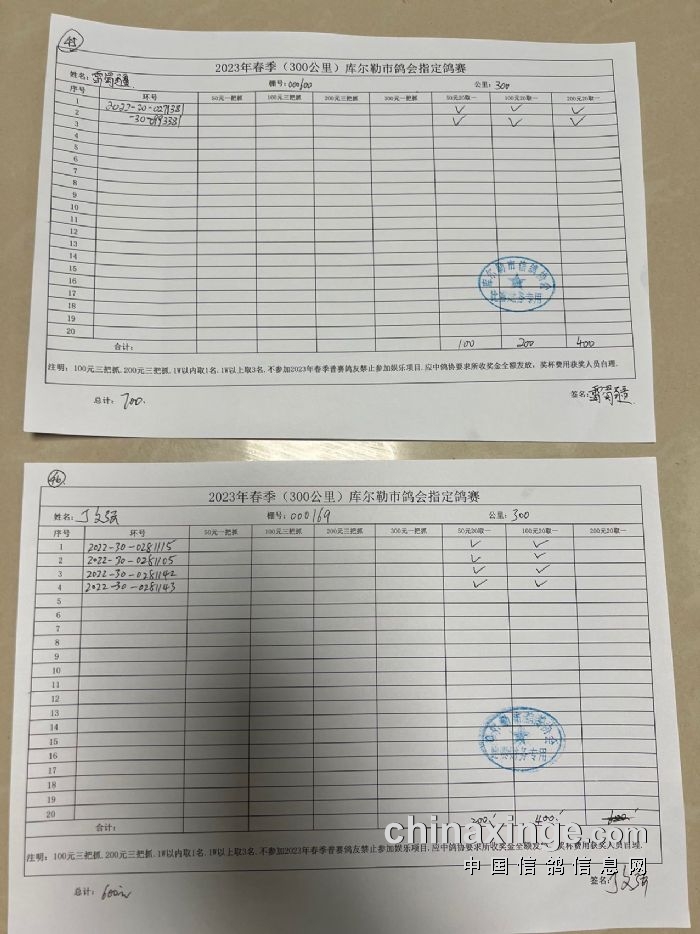 45
2023年春季（300公里）库尔勒市鸽会指定鸽赛
姓名: 棚号: 000100 公里: 300
序号 环号 50元一把抓 100元三把抓 200元三把抓 300元一把抓 50元20取一 100元20取一 200元20取一
1 2022-30-0271381 ✓ ✓ ✓
2 ✓ ✓ ✓
3
4
5
6
7
8
9
10
11
12
13
14
15
16
17
18
19
20
合计: 100 200 400
库尔勒市信鸽协会
注明: 100元三把抓.200元三把抓.1W以内取1名.1W以上取3名.不参加2023年春季普赛鸽友禁止参加娱乐项目.应中鸽协要求所收奖金全额发放, 奖杯费用获奖人员自理.
总计: 700. 签名:
46
2023年春季（300公里）库尔勒市鸽会指定鸽赛
姓名: 丁文强 棚号: 000169 公里: 300
序号 环号 50元一把抓 100元三把抓 200元三把抓 300元一把抓 50元20取一 100元20取一 200元20取一
1 2022-30-0281115 ✓ ✓
2 2022-30-0281105 ✓ ✓
3 2022-30-0281142 ✓ ✓
4 2022-30-0281143 ✓ ✓
5
6
7
8
9
10
11
12
13
14
15
16
17
18
19
20
合计: 200 400
库尔勒市信鸽协会
财务专用
注明: 100元三把抓.200元三把抓.1W以内取1名.1W以上取3名.不参加2023年春季普赛鸽友禁止参加娱乐项目.应中鸽协要求所收奖金全额发 奖杯费用获奖人员自理.
chinaxinge.com
中国信鸽信息网
总计: 600元 签名: 丁文强